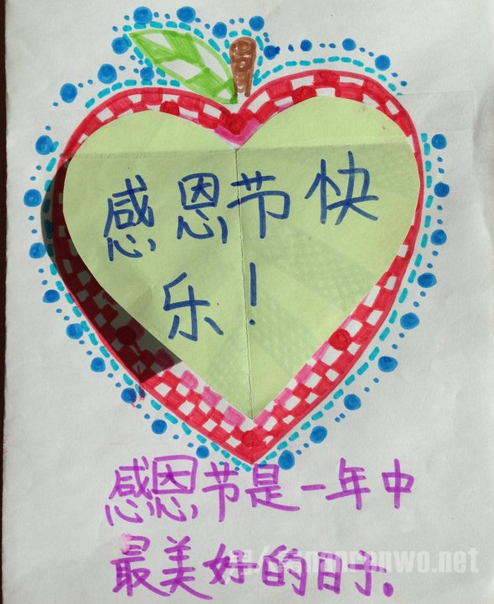 感恩节快
乐!
感恩节是一年中
最美好的日子.